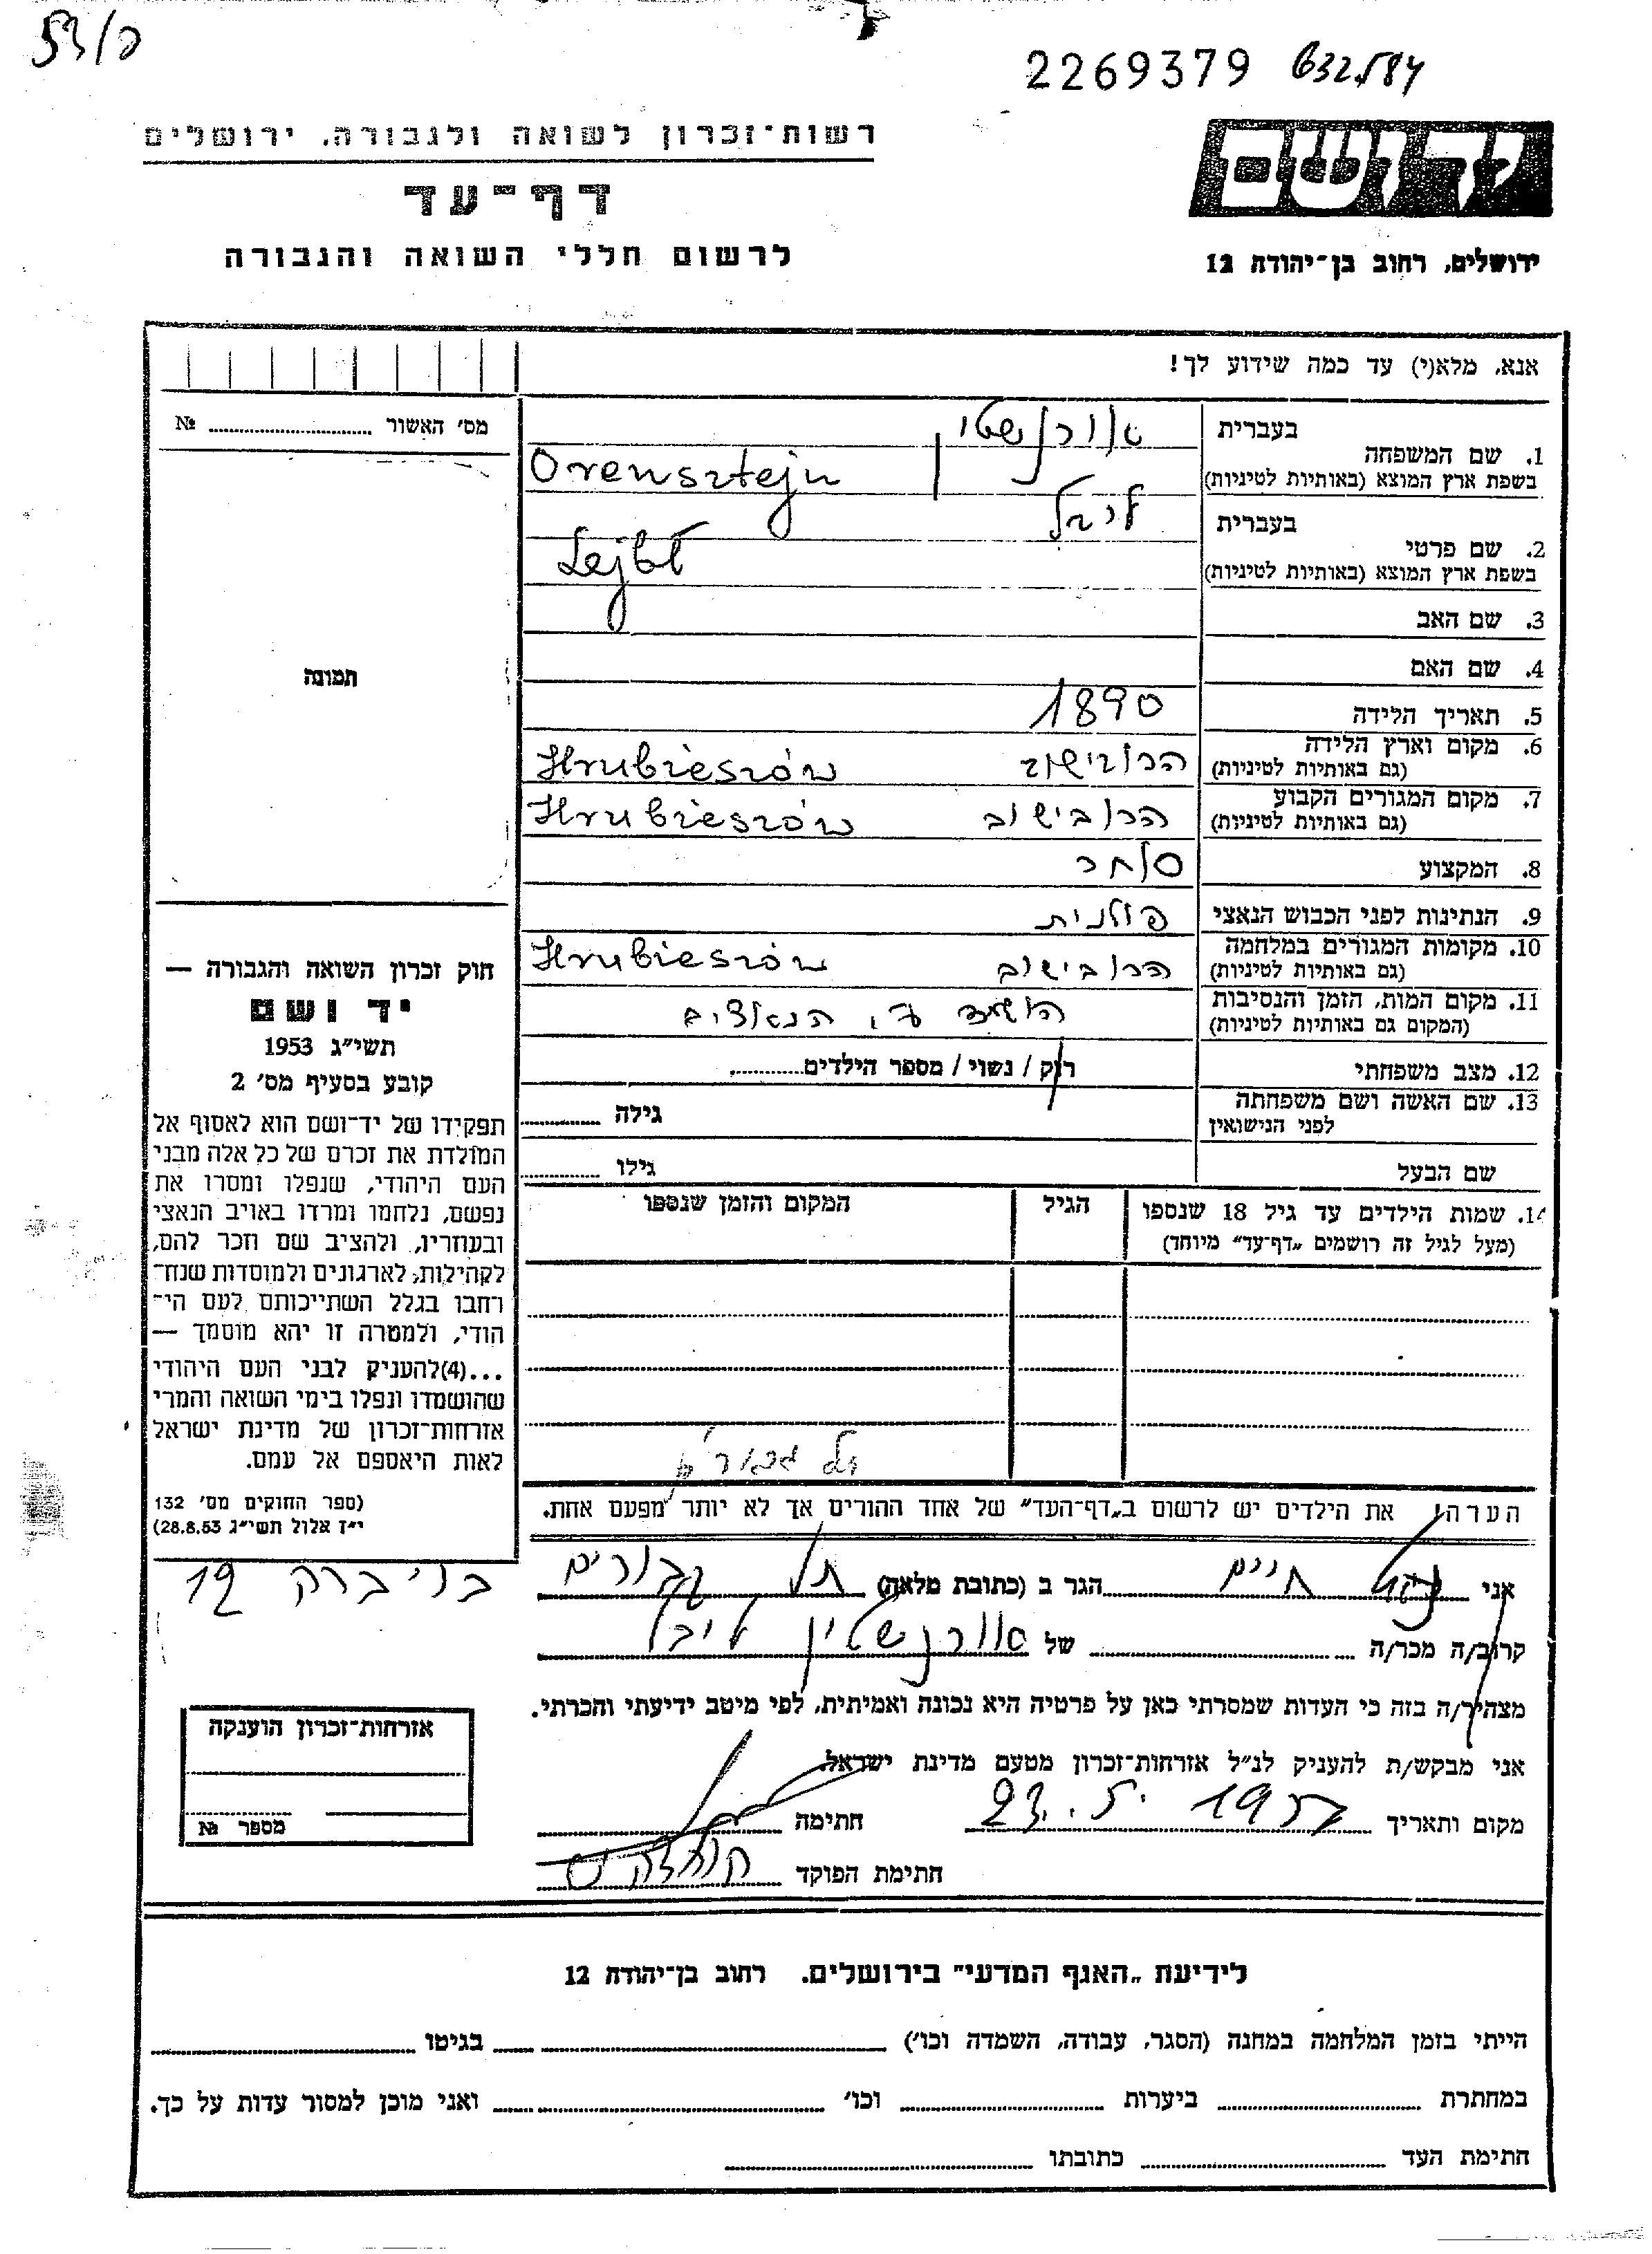 53/ס
2269379
ידושם
רשות־זכרון לשואה ולגבורה, ירושלים
דף־עד
לרשום חללי השואה והגבורה
ירושלים, רחוב בן־יהודה 12
אנא, מלא(י) עד כמה שידוע לך!
מס׳ האשור № ..........
1. שם המשפחה
בעברית אורנשטיין
בשפת ארץ המוצא (באותיות לטיניות) Orensztejn
2. שם פרטי
בעברית ליבל
בשפת ארץ המוצא (באותיות לטיניות) Lejbł
3. שם האב
4. שם האם
5. תאריך הלידה 1890
6. מקום וארץ הלידה (גם באותיות לטיניות) הרובישוב Hrubieszów
7. מקום המגורים הקבוע (גם באותיות לטיניות) הרובישוב Hrubieszów
8. המקצוע סוחר
9. הנתינות לפני הכבוש הנאצי פולנית
10. מקומות המגורים במלחמה (גם באותיות לטיניות) הרובישוב Hrubieszów
11. מקום המות, הזמן והנסיבות (המקום גם באותיות לטיניות) הושמד ע״י הנאצים
12. מצב משפחתי רוק / נשוי / מספר הילדים..........
13. שם האשה ושם משפחתה לפני הנישואין גילה ..........
שם הבעל גילו ..........
14. שמות הילדים עד גיל 18 שנספו
(מעל לגיל זה רושמים „דף־עד״ מיוחד)
הגיל
המקום והזמן שנספו
הערה: את הילדים יש לרשום ב„דף־העד״ של אחד ההורים אך לא יותר מפעם אחת.
תמונה
חוק זכרון השואה והגבורה —
יד ושם
תשי״ג 1953
קובע בסעיף מס׳ 2
תפקידו של יד־ושם הוא לאסוף אל
המולדת את זכרם של כל אלה מבני
העם היהודי, שנפלו ומסרו את
נפשם, נלחמו ומרדו באויב הנאצי
ובעוזריו, ולהציב שם וזכר להם,
לקהילות, לארגונים ולמוסדות שנח־
רחבו בגלל השתייכותם לעם הי־
הודי, ולמטרה זו יהא מוסמך —
...(4)להעניק לבני העם היהודי
שהושמדו ונפלו בימי השואה והמרי
אזרחות־זכרון של מדינת ישראל
לאות היאספם אל עמם.
(ספר החוקים מס׳ 132
י״ז אלול תשי״ג 28.8.53)
אני חיים הגר ב (כתובת מלאה) תל גבורים בני ברק 19
קרוב/ה מכר/ה .......... של אורנשטיין ליבל
מצהיר/ה בזה כי העדות שמסרתי כאן על פרטיה היא נכונה ואמיתית, לפי מיטב ידיעתי והכרתי.
אני מבקש/ת להעניק לנ״ל אזרחות־זכרון מטעם מדינת ישראל.
מקום ותאריך 23.5.1957 חתימה
חתימת הפוקד
אזרחות־זכרון הוענקה
מספר №
לידיעת „האגף המדעי״ בירושלים. רחוב בן־יהודה 12
הייתי בזמן המלחמה במחנה (הסגר, עבודה, השמדה וכו׳) .......... בגיטו ..........
במחתרת .......... ביערות .......... וכו׳ .......... ואני מוכן למסור עדות על כך.
חתימת העד .......... כתובתו ..........